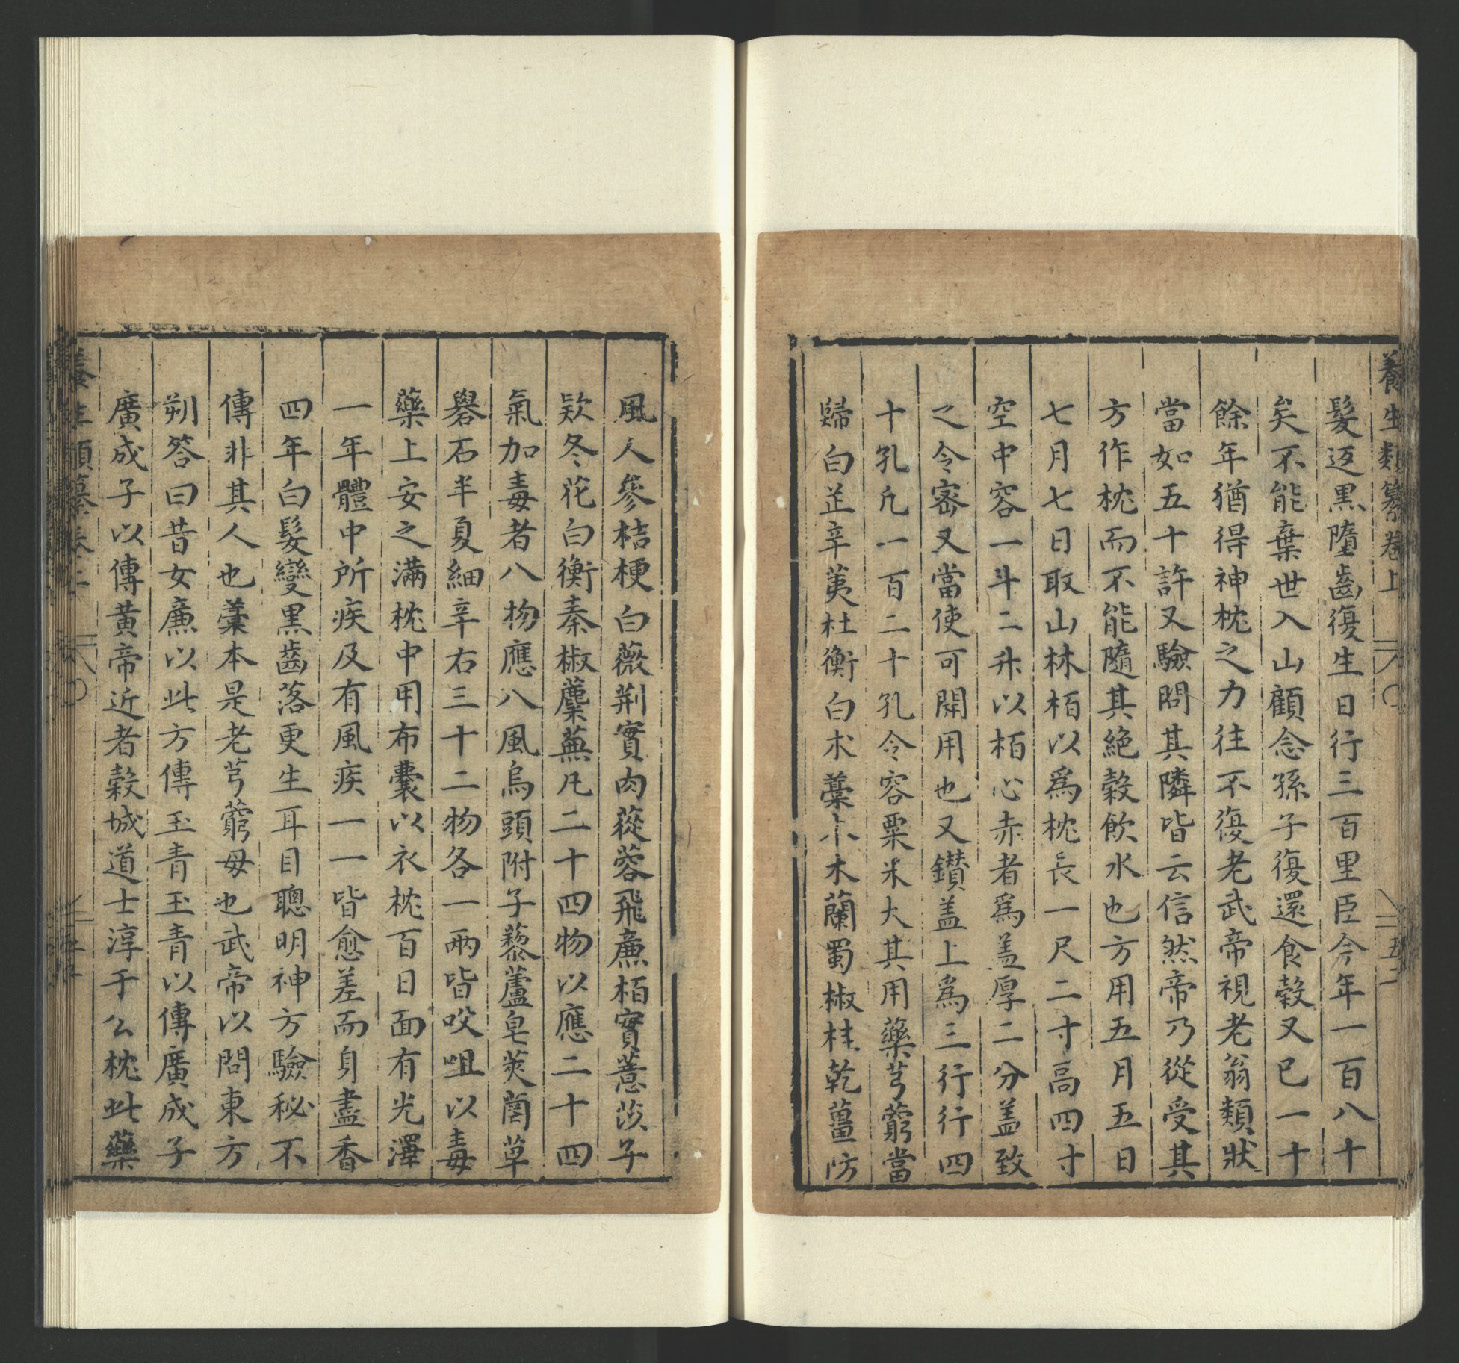 養生類纂卷上
髮返黒墮齒復生日行三百里臣今年一百八十
矣不能棄世入山顧念孫子復還食榖又已一十
餘年猶得神枕之力往不復老武帝視老翁類狀
當如五十許又驗問其隣皆云信然帝乃從受其
方作枕而不能隨其絶榖飲水也方用五月五日
七月七日取山林栢以爲枕長一尺二寸高四寸
空中容一斗二升以栢心赤者爲盖厚二分盖致
之令宻又當使可開用也又鑽盖上爲三行行四
十孔凢一百二十孔令容粟米大其用藥芎藭當
歸白芷辛荑杜衡白朮藁本木蘭蜀椒桂乾薑防
風人參桔梗白薇荆實肉蓯蓉飛廉栢實薏苡子
欵冬花白衡秦椒蘪蕪凢二十四物以應二十四
氣加毒者八物應八風烏頭附子藜蘆皂莢䓵草
礜石半夏細辛右三十二物各一兩皆㕮咀以毒
藥上安之滿枕中用布囊以衣枕百日面有光澤
一年體中所疾及有風疾一一皆愈差而身盡香
四年白髮變黒齒落更生耳目聰明神方驗秘不
傳非其人也藁本是老芎藭母也武帝以問東方
朔答曰昔女廉以此方傳玉青玉青以傳廣成子
廣成子以傳黃帝近者榖城道士淳于公枕此藥